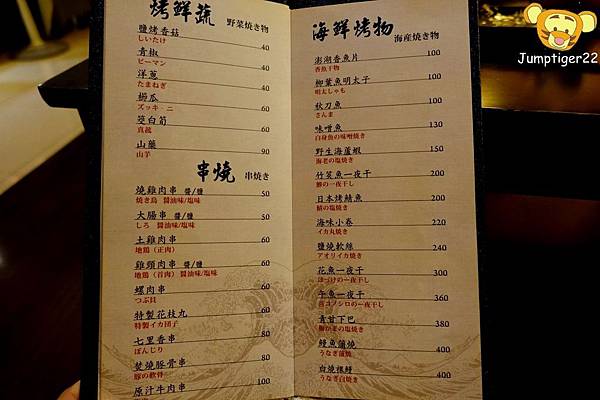 烤鮮蔬 野菜焼き物
鹽烤香菇 40
しいたけ
青椒 40
ピーマン
洋蔥 40
たまねぎ
櫛瓜 60
ズッキ-ニ
筊白筍 60
真菰
山藥 90
山芋
串燒 串焼き
燒雞肉串 醬/鹽 50
焼き鳥 醤油味/塩味
大腸串 醬/鹽 50
しろ 醤油味/塩味
土雞肉串 60
地鶏（正肉）
雞頸肉串 醬/鹽 60
地鶏（首肉）醤油味/塩味
螺肉串 60
つぶ貝
特製花枝丸 60
特製イカ団子
七里香串 80
ぼんじり
焚燒豚骨串 80
豚の軟骨
原汁牛肉串 100
海鮮烤物 海産焼き物
澎湖香魚片 100
香魚干物
柳葉魚明太子 100
明太しゃも
秋刀魚 100
さんま
味噌魚 130
白身魚の味噌焼き
野生海蘆蝦 150
海老の塩焼き
竹筴魚一夜干 200
鯵の一夜干し
日本烤鯖魚 200
鯖の塩焼き
海味小卷 220
イカ丸焼き
鹽燒軟絲 240
アオリイカ焼き
花魚一夜干 300
ほっけの一夜干し
午魚一夜干 360
一夜干し
青甘下巴 380
の塩焼き
鰻魚蒲燒 400
うなぎ蒲焼
白燒粿鰻 400
うなぎ白焼き
Jumptiger22